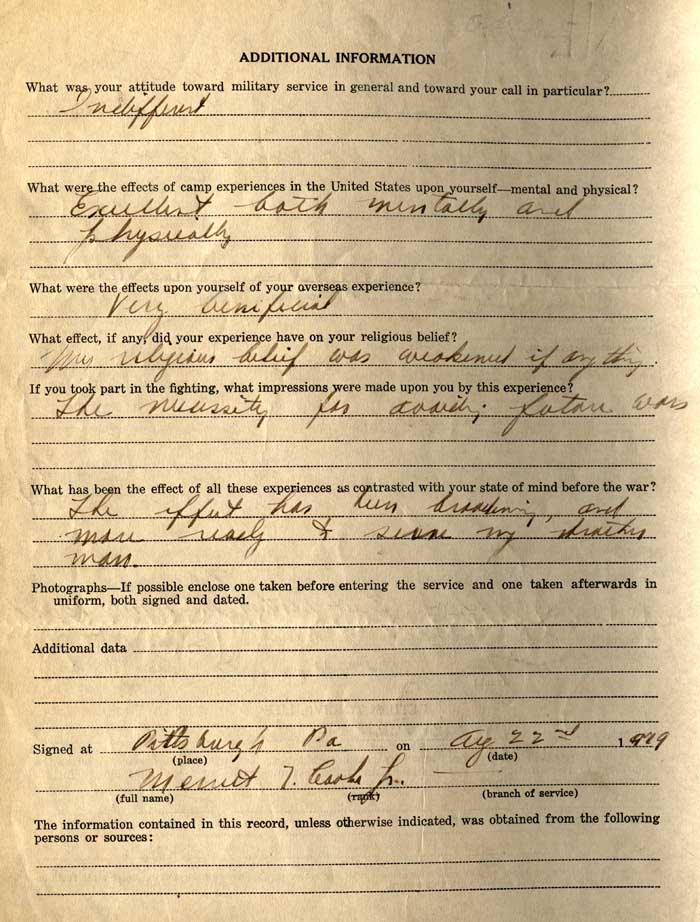 ADDITIONAL INFORMATION
What was your attitude toward military service in general and toward your call in particular?
Indifferent
What were the effects of camp experiences in the United States upon yourself—mental and physical?
Excellent both mentally and
physically
What were the effects upon yourself of your overseas experience?
Very benificial
What effect, if any, did your experience have on your religious belief?
My religious belief was weakened if anything.
If you took part in the fighting, what impressions were made upon you by this experience?
The necessity for avoiding future wars
What has been the effect of all these experiences as contrasted with your state of mind before the war?
The effect has been broadening, and
more ready to serve my brother
man.
Photographs—If possible enclose one taken before entering the service and one taken afterwards in
uniform, both signed and dated.
Additional data
Signed at Pittsburgh Pa on Aug 22nd 1919
(place) (date)
Merritt T. Cooke Jr.
(full name) (rank) (branch of service)
The information contained in this record, unless otherwise indicated, was obtained from the following
persons or sources: